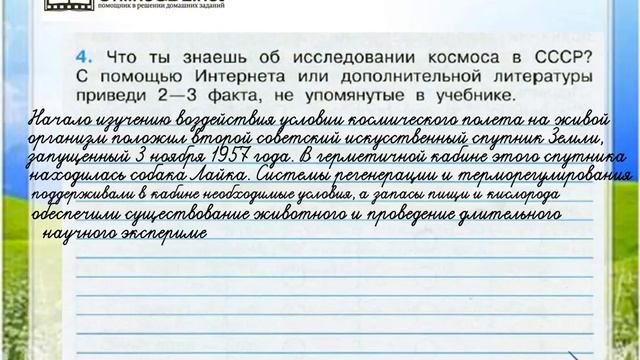 помощник в решении домашних заданий
4. Что ты знаешь об исследовании космоса в СССР?
С помощью Интернета или дополнительной литературы
приведи 2—3 факта, не упомянутые в учебнике.
Начало изучению воздействия условии космического полета на живой
организм положил второй советский искусственный спутник Земли,
запущенный 3 ноября 1957 года. В герметичной кабине этого спутника
находилась собака Лайка. Системы регенерации и терморегулирования
поддерживали в кабине необходимые условия, а запасы пищи и кислорода
обеспечили существование животного и проведение длительного
научного экспериме